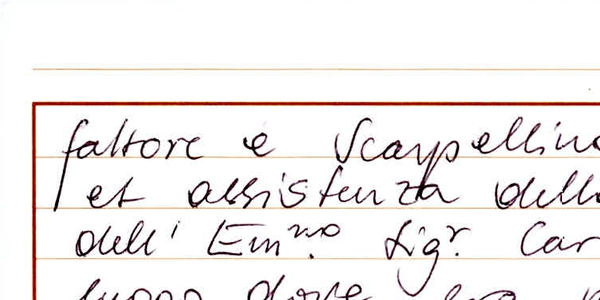 fattore e Scarpellino
et assistenza dell
dell' Em.mo Sig.r Car
luogo dove